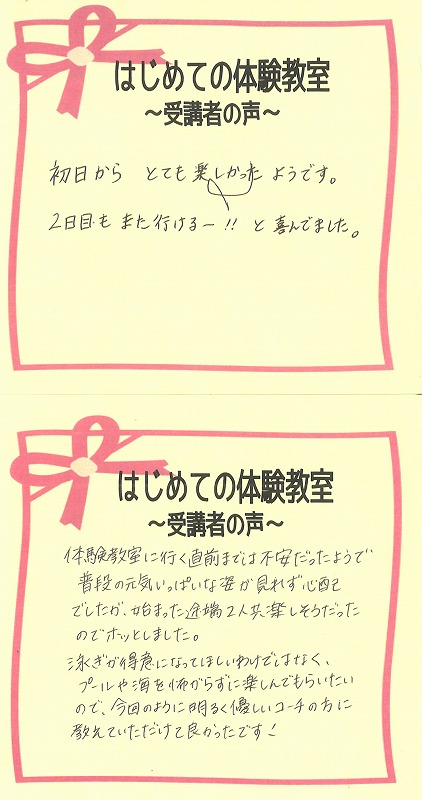 はじめての体験教室
～受講者の声～
初日から とても楽しかったようです。
2日目もまた行けるー!! と喜んでました。
はじめての体験教室
～受講者の声～
体験教室に行く直前までは不安だったようで
普段の元気いっぱいな姿が見れず心配
でしたが、始まった途端2人共楽しそうだった
のでホッとしました。
泳ぎが得意になってほしいわけではなく、
プールや海を怖がらずに楽しんでもらいたい
ので、今回のように明るく優しいコーチの方に
教えていただけて良かったです!